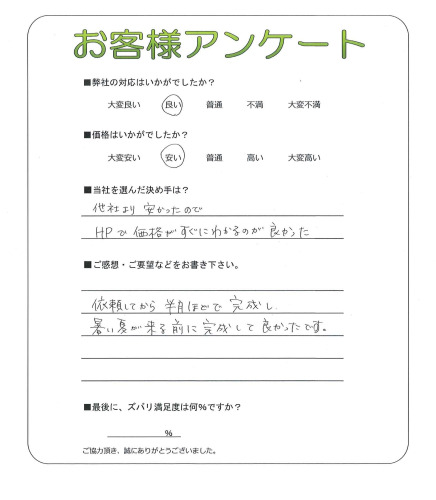 お客様アンケート
■弊社の対応はいかがでしたか?
大変良い 良い 普通 不満 大変不満
■価格はいかがでしたか?
大変安い 安い 普通 高い 大変高い
■当社を選んだ決め手は?
他社より 安かったので
HPで価格がすぐにわかるのが良かった
■ご感想・ご要望などをお書き下さい。
依頼してから半月ほどで完成し
暑い夏が来る前に完成して良かったです。
■最後に、ズバリ満足度は何%ですか?
%
ご協力頂き、誠にありがとうございました。